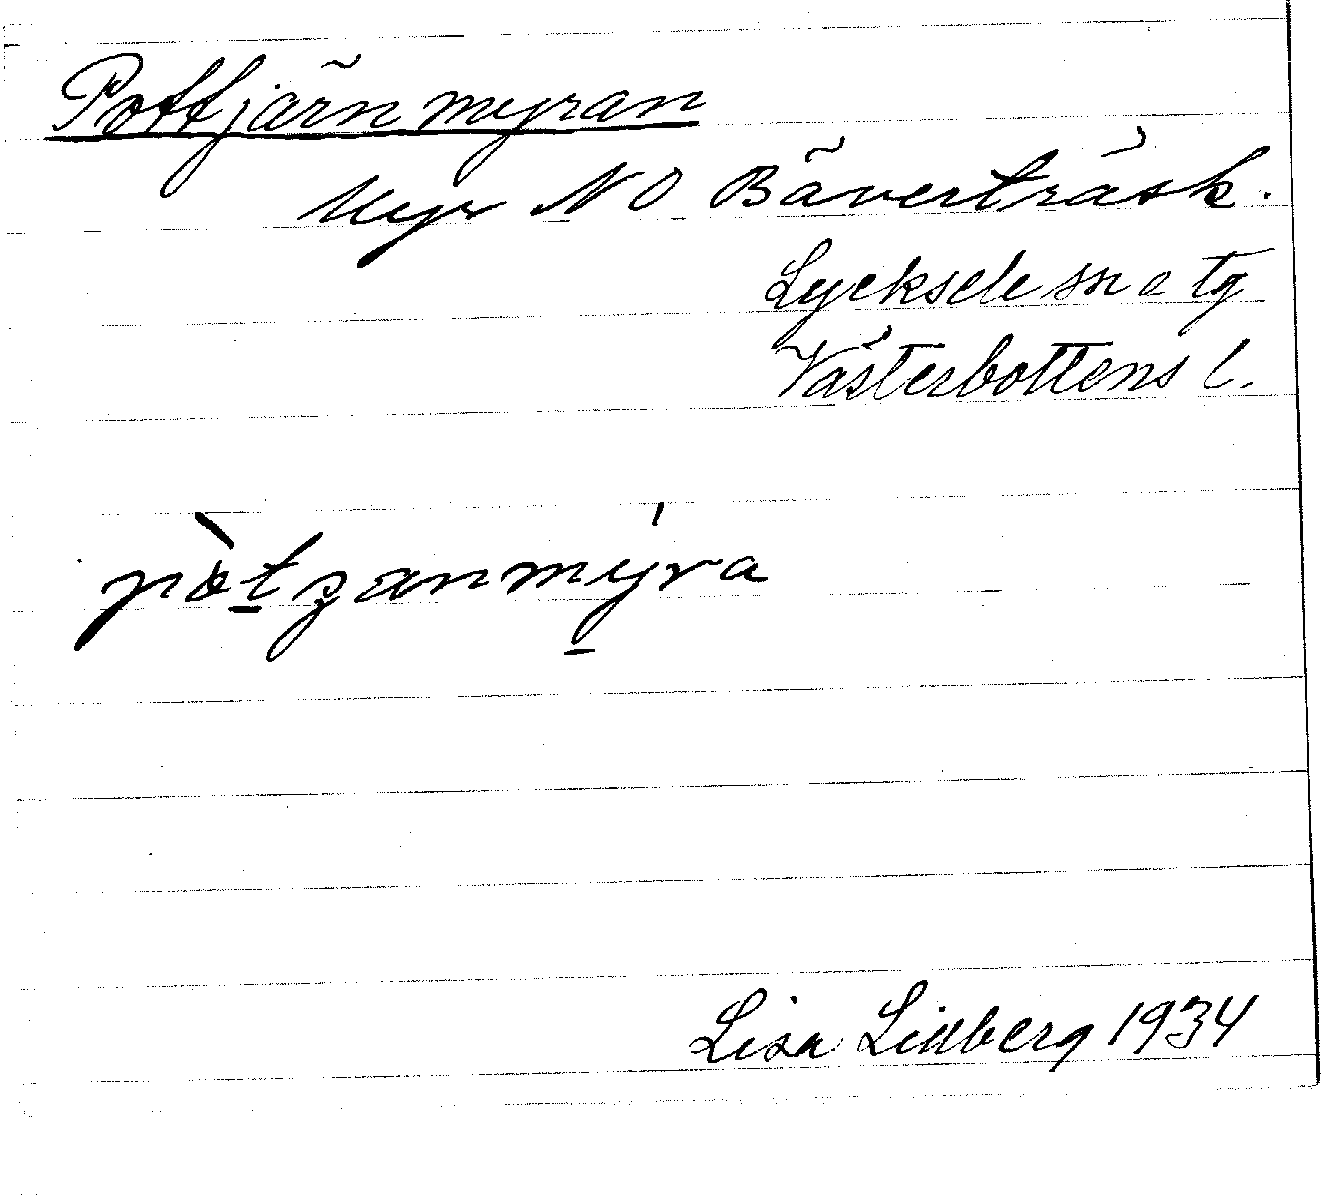 Pottjärnmyran
Myr NO Bäverträsk.
Lycksele sn o tg
Västerbottens l.
pòtʒanmýra
Lisa Lidberg 1934